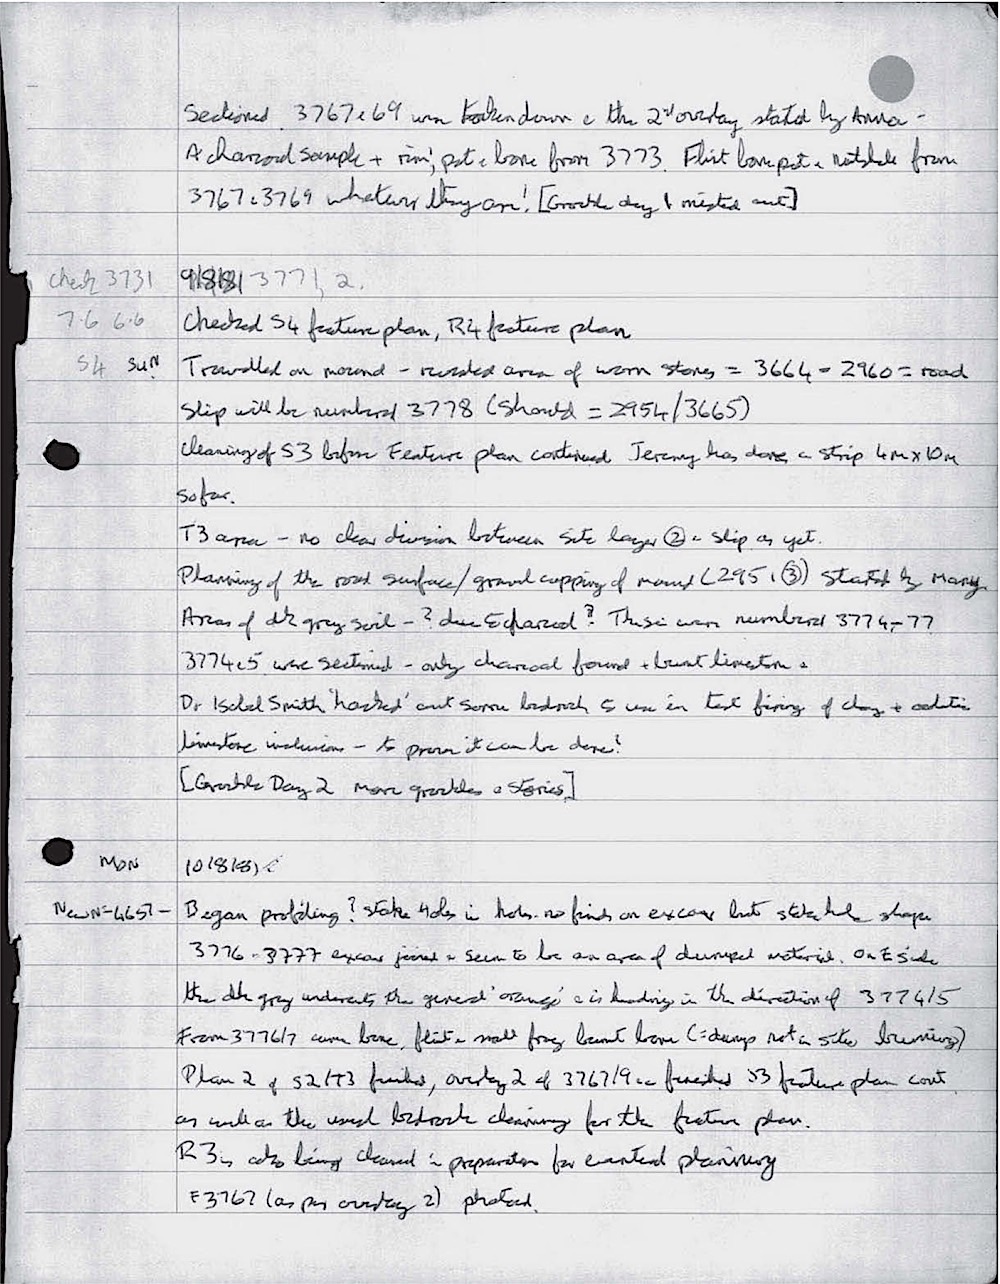 Sectioned. 3767 & 69 were taken down & the 2nd overlay started by Anna -
A charcoal sample + rim, pot & bone from 3773. Flint bone pot & nutshell from
3767 & 3769 whatever they are! [Grockle day 1 misted out]
check 3731 9/8/81 3771, 2.
7.6 6.6 Checked S4 feature plan, R4 feature plan
S4 SUN Travelled on mound - area of worn stones = 3664 - 2960 = road
Slip will be numbered 3778 (Should = 2954/3665)
Cleaning of S3 before Feature plan continued Jeremy has done a strip 4m x 10m
so far.
T3 area - no clear division between site layer ② & slip as yet.
Planning of the road surface/gravel capping of mound (2951 ③) started by Mary
Areas of dk grey soil - ? due to charcoal? These were numbered 3774-77
3774 & 5 were sectioned - only charcoal found + burnt limestone.
Dr Isobel Smith 'hacked' out some bedrock to use in test firing of clay + oolitic
limestone inclusions - to prove it can be done!
[Grockle Day 2 more grockles & stories]
MON 10/8/81
New N= 4657 - Began profiling ? stake holes in holes. no finds on excav but stake hole shape
3776 - 3777 excav joined & seem to be an area of dumped material. On E side
the dk grey undercuts the general 'orange' & is heading in the direction of 3774/5
From 3776/7 came bone, flint & small frag burnt bone (= dump not in situ burning)
Plan 2 of S2/T3 finished, overlay 2 of 3767/9 finished S3 feature plan cont
as well as the usual bedrock cleaning for the feature plan.
R3 is also being cleaned in preparation for eventual planning
F3767 (as per overlay 2) photoed.